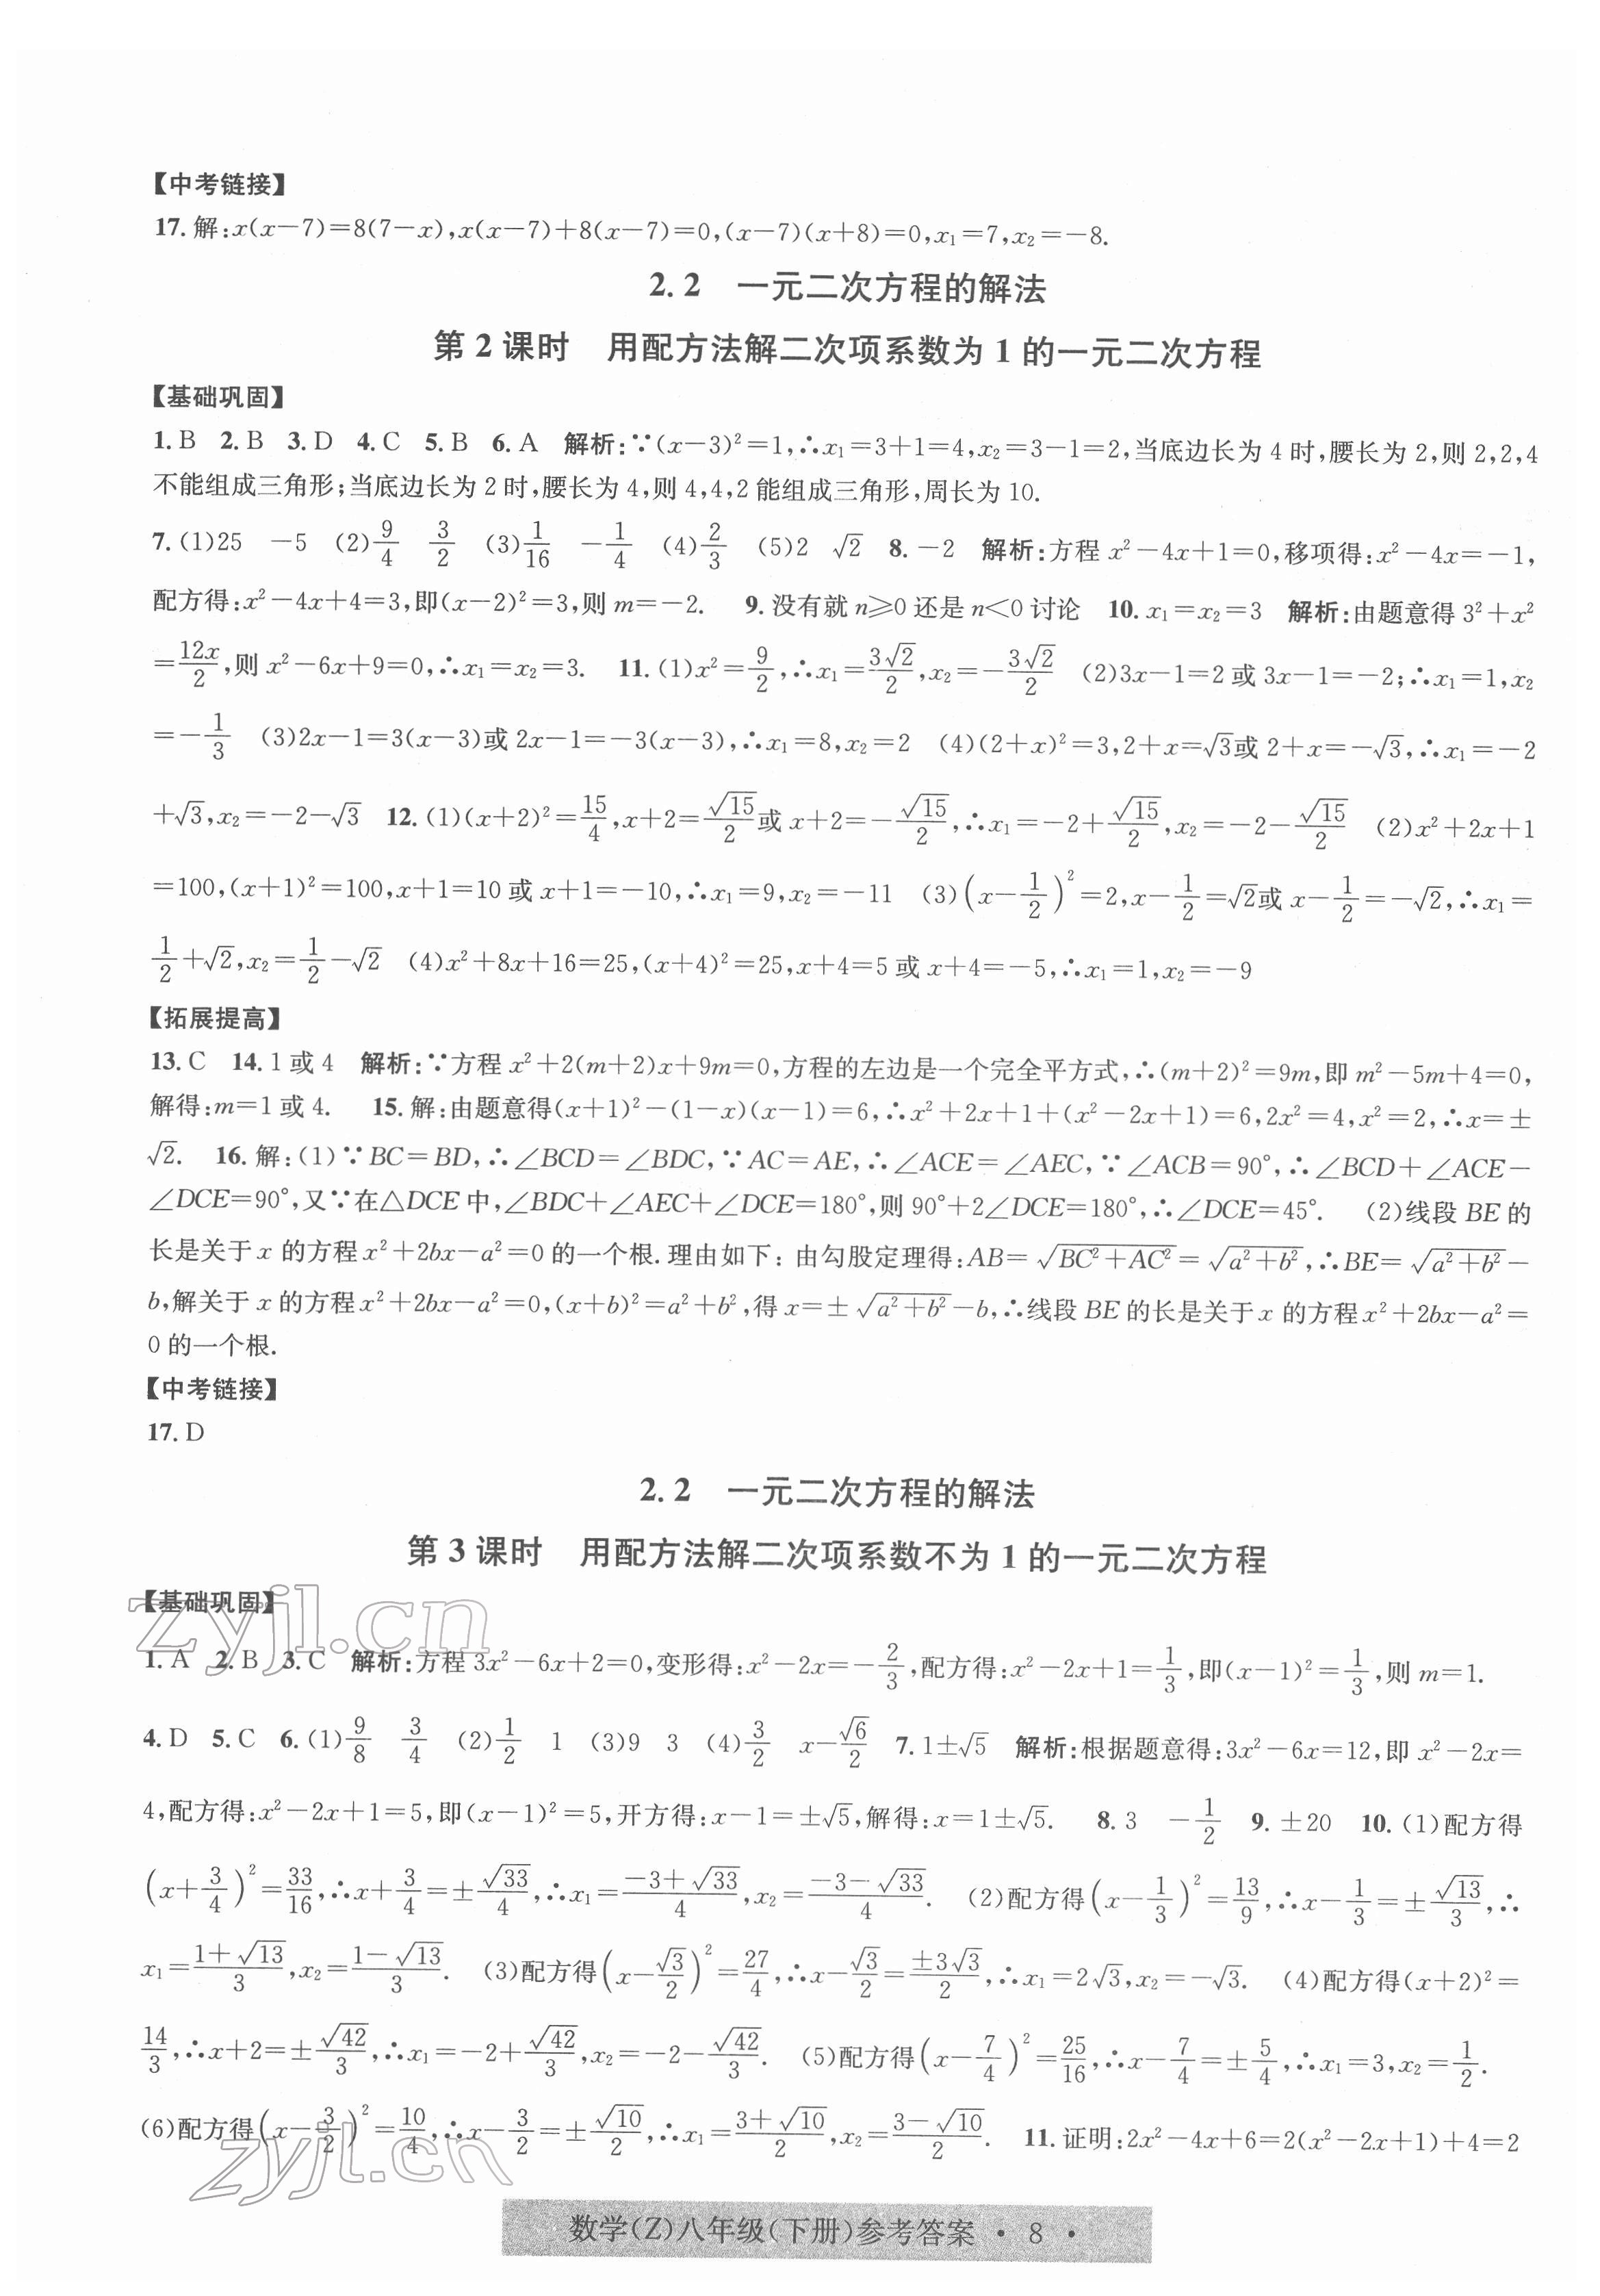 【中考链接】
17. 解:x(x−7)=8(7−x),x(x−7)+8(x−7)=0,(x−7)(x+8)=0,x₁=7,x₂=−8.
2.2 一元二次方程的解法
第 2 课时 用配方法解二次项系数为 1 的一元二次方程
【基础巩固】
1. B 2. B 3. D 4. C 5. B 6. A 解析:∵(x−3)²=1,∴x₁=3+1=4,x₂=3−1=2,当底边长为 4 时,腰长为 2,则 2,2,4
不能组成三角形;当底边长为 2 时,腰长为 4,则 4,4,2 能组成三角形,周长为 10.
7. (1)25 −5 (2)9/4 3/2 (3)1/16 −1/4 (4)2/3 (5)2 √2 8. −2 解析:方程 x²−4x+1=0,移项得:x²−4x=−1,
配方得:x²−4x+4=3,即(x−2)²=3,则 m=−2. 9. 没有就 n≥0 还是 n<0 讨论 10. x₁=x₂=3 解析:由题意得 3²+x²
=12x/2,则 x²−6x+9=0,∴x₁=x₂=3. 11. (1)x²=9/2,∴x₁=3√2/2,x₂=−3√2/2 (2)3x−1=2 或 3x−1=−2;∴x₁=1,x₂
=−1/3 (3)2x−1=3(x−3)或 2x−1=−3(x−3),∴x₁=8,x₂=2 (4)(2+x)²=3,2+x=√3或 2+x=−√3,∴x₁=−2
+√3,x₂=−2−√3 12. (1)(x+2)²=15/4,x+2=√15/2或 x+2=−√15/2,∴x₁=−2+√15/2,x₂=−2−√15/2 (2)x²+2x+1
=100,(x+1)²=100,x+1=10 或 x+1=−10,∴x₁=9,x₂=−11 (3)(x−1/2)²=2,x−1/2=√2或 x−1/2=−√2,∴x₁=
1/2+√2,x₂=1/2−√2 (4)x²+8x+16=25,(x+4)²=25,x+4=5 或 x+4=−5,∴x₁=1,x₂=−9
【拓展提高】
13. C 14. 1 或 4 解析:∵方程 x²+2(m+2)x+9m=0,方程的左边是一个完全平方式,∴(m+2)²=9m,即 m²−5m+4=0,
解得:m=1 或 4. 15. 解:由题意得(x+1)²−(1−x)(x−1)=6,∴x²+2x+1+(x²−2x+1)=6,2x²=4,x²=2,∴x=±
√2. 16. 解:(1)∵BC=BD,∴∠BCD=∠BDC,∵AC=AE,∴∠ACE=∠AEC,∵∠ACB=90°,∴∠BCD+∠ACE−
∠DCE=90°,又∵在△DCE 中,∠BDC+∠AEC+∠DCE=180°,则 90°+2∠DCE=180°,∴∠DCE=45°. (2)线段 BE 的
长是关于 x 的方程 x²+2bx−a²=0 的一个根. 理由如下: 由勾股定理得:AB=√(BC²+AC²)=√(a²+b²),∴BE=√(a²+b²)−
b,解关于 x 的方程 x²+2bx−a²=0,(x+b)²=a²+b²,得 x=±√(a²+b²)−b,∴线段 BE 的长是关于 x 的方程 x²+2bx−a²=
0 的一个根.
【中考链接】
17. D
2.2 一元二次方程的解法
第 3 课时 用配方法解二次项系数不为 1 的一元二次方程
【基础巩固】
zyjl.cn
1. A 2. B 3. C 解析:方程 3x²−6x+2=0,变形得:x²−2x=−2/3,配方得:x²−2x+1=1/3,即(x−1)²=1/3,则 m=1.
4. D 5. C 6. (1)9/8 3/4 (2)1/2 1 (3)9 3 (4)3/2 x−√6/2 7. 1±√5 解析:根据题意得:3x²−6x=12,即 x²−2x=
4,配方得:x²−2x+1=5,即(x−1)²=5,开方得:x−1=±√5,解得:x=1±√5. 8. 3 −1/2 9. ±20 10. (1)配方得
(x+3/4)²=33/16,∴x+3/4=±√33/4,∴x₁=(−3+√33)/4,x₂=(−3−√33)/4. (2)配方得(x−1/3)²=13/9,∴x−1/3=±√13/3,∴
x₁=(1+√13)/3,x₂=(1−√13)/3. (3)配方得(x−√3/2)²=27/4,∴x−√3/2=±3√3/2,∴x₁=2√3,x₂=−√3. (4)配方得(x+2)²=
14/3,∴x+2=±√42/3,∴x₁=−2+√42/3,x₂=−2−√42/3. (5)配方得(x−7/4)²=25/16,∴x−7/4=±5/4,∴x₁=3,x₂=1/2.
(6)配方得(x−3/2)²=10/4,∴x−3/2=±√10/2,∴x₁=(3+√10)/2,x₂=(3−√10)/2. 11. 证明:2x²−4x+6=2(x²−2x+1)+4=2
zyjl.cn
数学(Z)八年级(下册)参考答案 · 8 ·